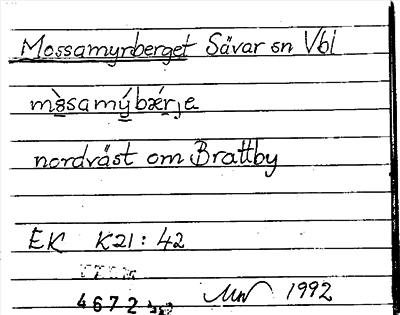 Mossamyrberget Sävar sn Vbl
mòsamýbǽrje
nordväst om Brattby
EK K21:42
4672
1992